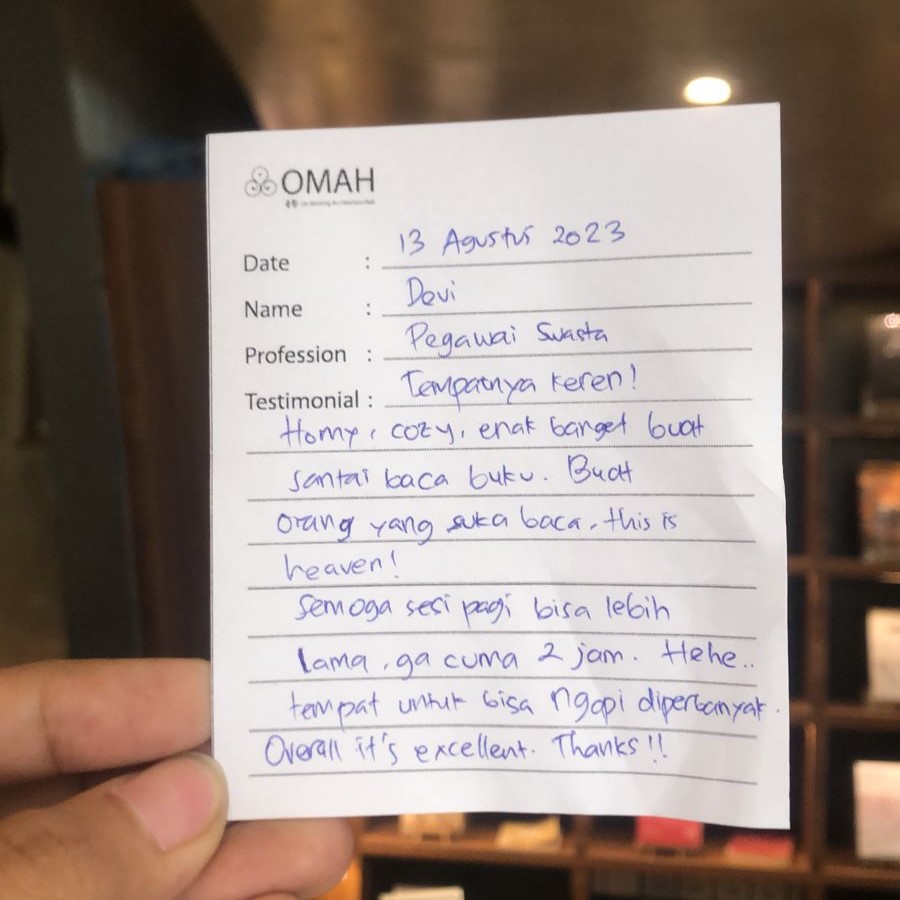 OMAH
Date : 13 Agustus 2023
Name : Devi
Profession : Pegawai Swasta
Testimonial : Tempatnya keren!
Homy, cozy, enak banget buat
santai baca buku. Buat
orang yang suka baca, this is
heaven!
Semoga sesi pagi bisa lebih
lama, ga cuma 2 jam. Hehe..
tempat untuk bisa ngopi diperbanyak.
Overall it's excellent. Thanks!!